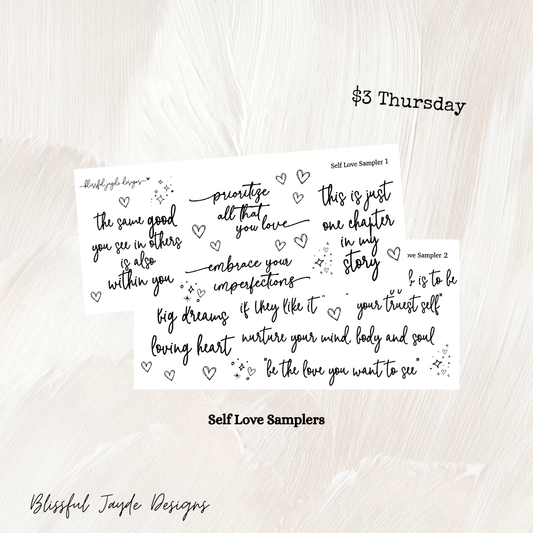 $3 Thursday
Self Love Sampler 1
blissful jayde designs
the same good
you see in others
is also
within you
prioritize
all that
you love
embrace your
imperfections
this is just
one chapter
in my
story
ove Sampler 2
is to be
your truest self"
big dreams
if they like it
loving heart
nurture your mind, body and soul
"be the love you want to see"
Self Love Samplers
Blissful Jayde Designs